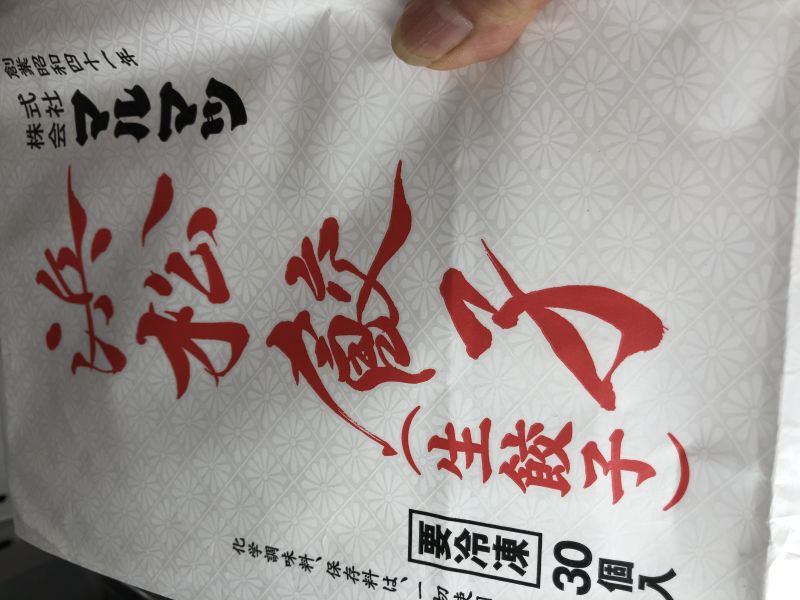 創業昭和四十八年
株式会社マルマツ
浜松餃子
（生餃子）
要冷凍
30個入
化学調味料、保存料は、一切使用